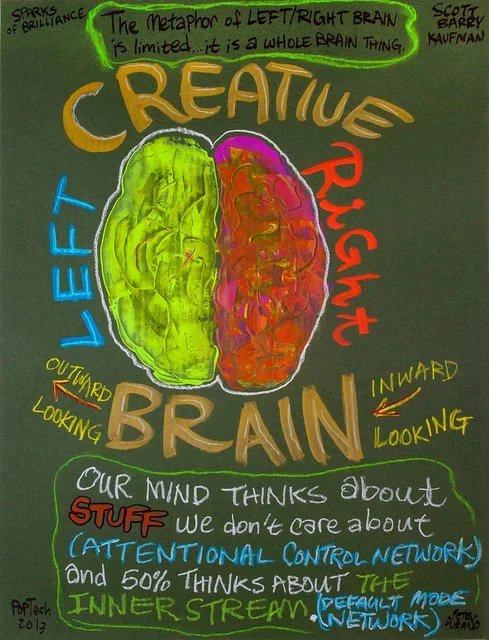 SPARKS
OF BRILLIANCE
The METAPHOR OF LEFT/RIGHT BRAIN
is limited...it is a WHOLE BRAIN THING.
SCOTT
BARRY
KAUFMAN
CREATIVE
LEFT
RiGht
OUTWARD
LOOKING
INWARD
LOOKING
BRAIN
OUR MIND THINKS about
STUFF we don't care about
(ATTENTIONAL CONTROL NETWORK)
and 50% THINKS ABOUT THE
INNER STREAM. (DEFAULT MODE
NETWORK)
PopTech
2013
PETER
DURAND